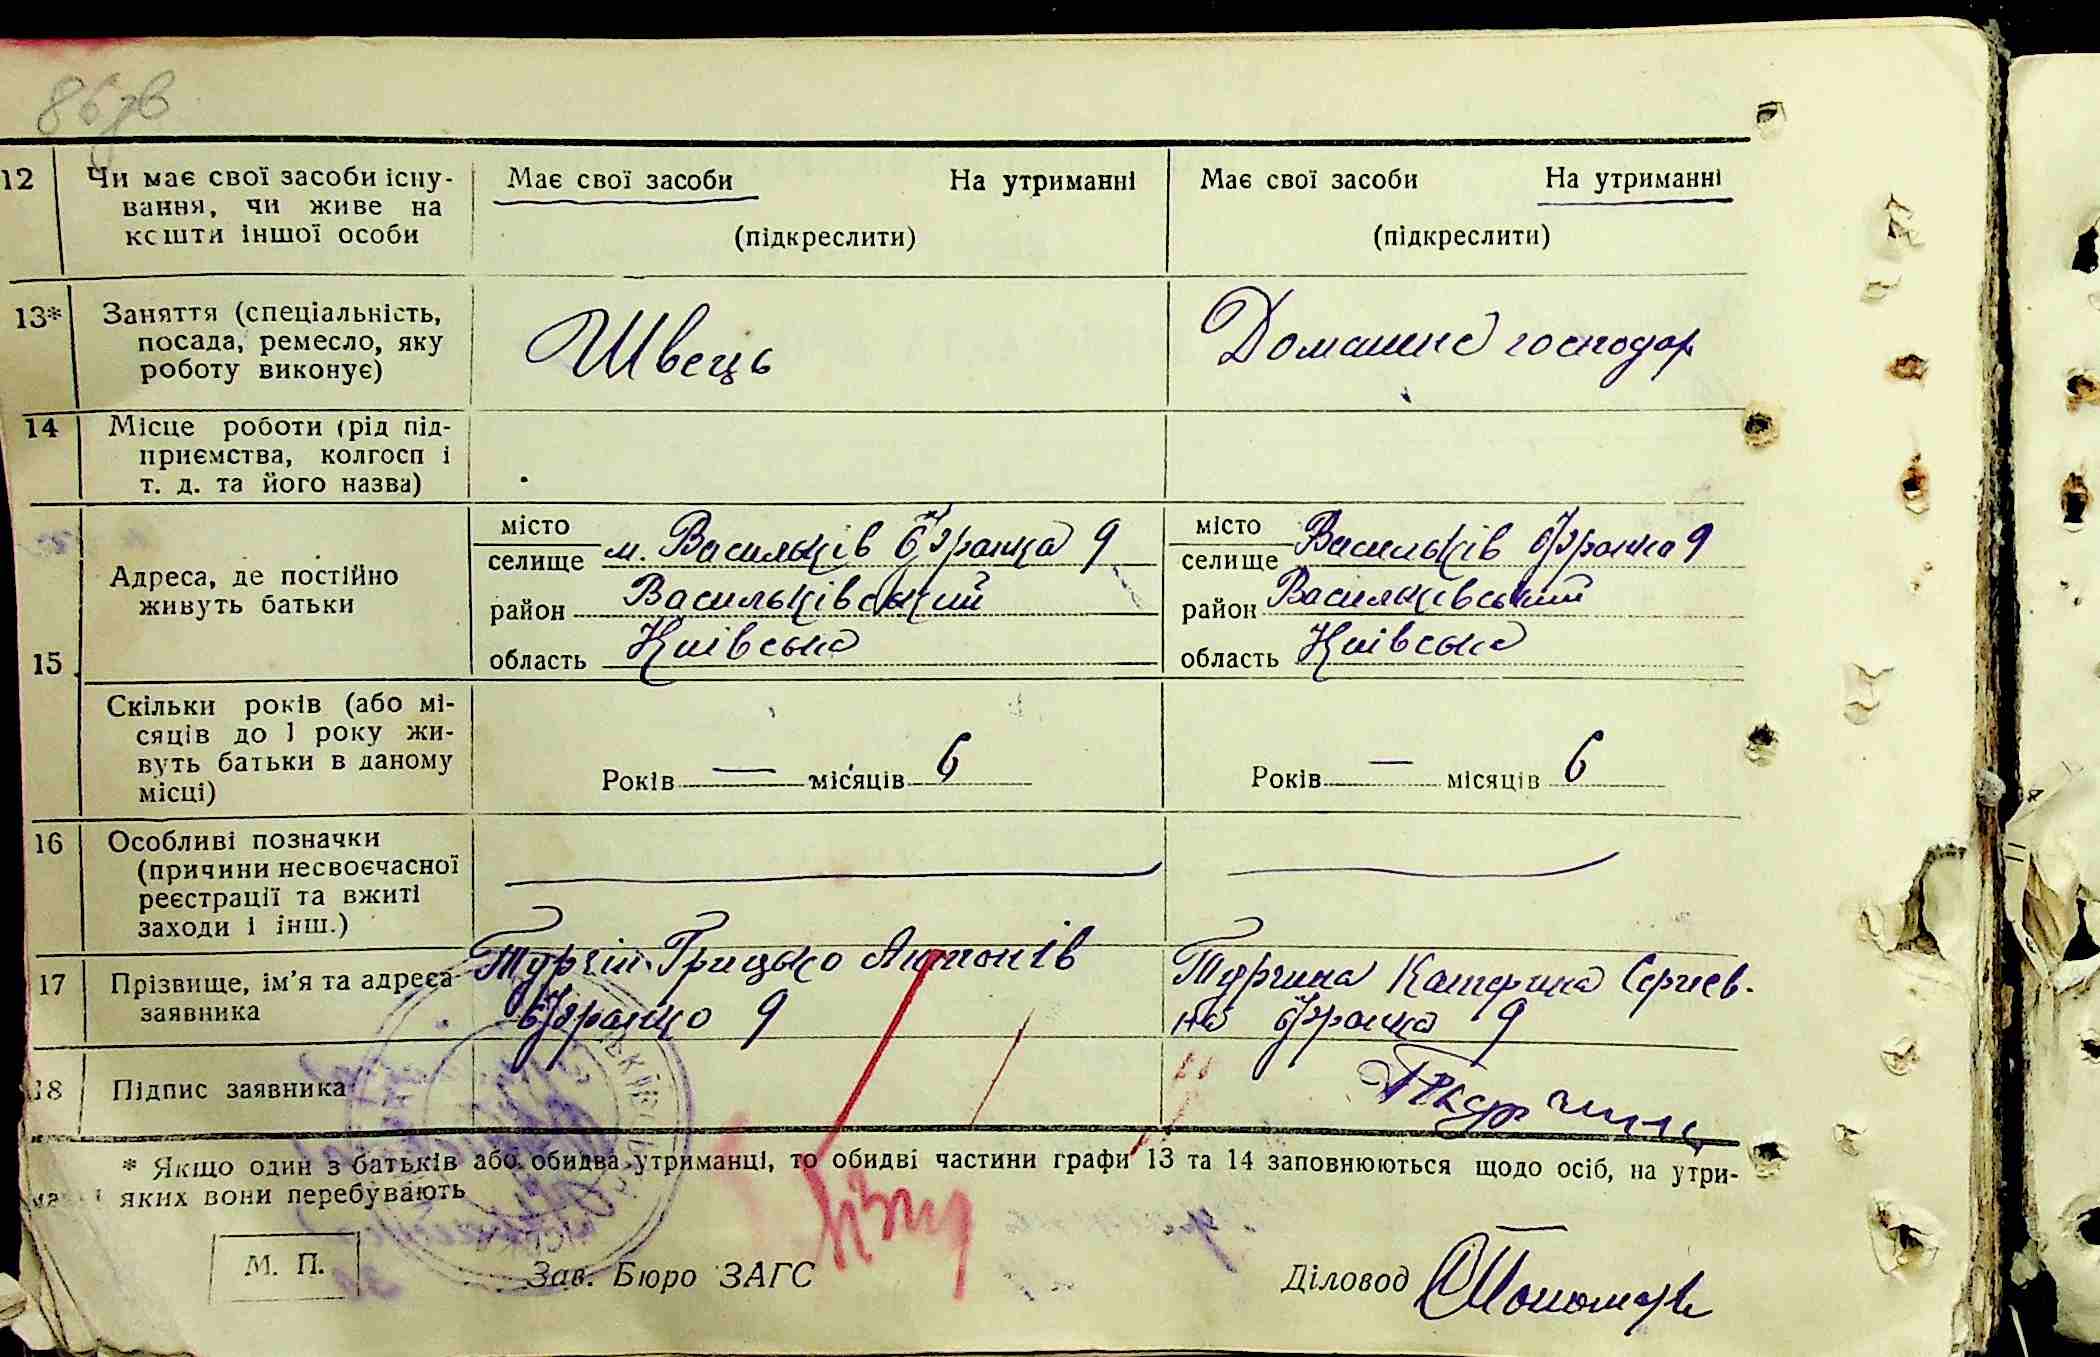 86зв
12 Чи має свої засоби існу- Має свої засоби На утриманні Має свої засоби На утриманні
вання, чи живе на
кошти іншої особи (підкреслити) (підкреслити)
13* Заняття (спеціальність,
посада, ремесло, яку Швець Домашнє господар
роботу виконує)
14 Місце роботи (рід під-
приємства, колгосп і
т. д. та його назва)
місто місто
селище м. Васильків Франка 9 селище Васильків Франка 9
Адреса, де постійно
живуть батьки район Васильківський район Васильківський
15 область Київська область Київська
Скільки років (або мі-
сяців до 1 року жи-
вуть батьки в даному Років — місяців 6 Років — місяців 6
місці)
16 Особливі позначки
(причини несвоєчасної
реєстрації та вжиті
заходи і інш.)
17 Прізвище, ім’я та адреса Турчін Грицько Антонів Турчина Катерина Сергієв-
заявника Франко 9 на Франка 9
18 Підпис заявника
* Якщо один з батьків або обидва утриманці, то обидві частини графи 13 та 14 заповнюються щодо осіб, на утри-
яких вони перебувають
М. П. Зав. Бюро ЗАГС Діловод